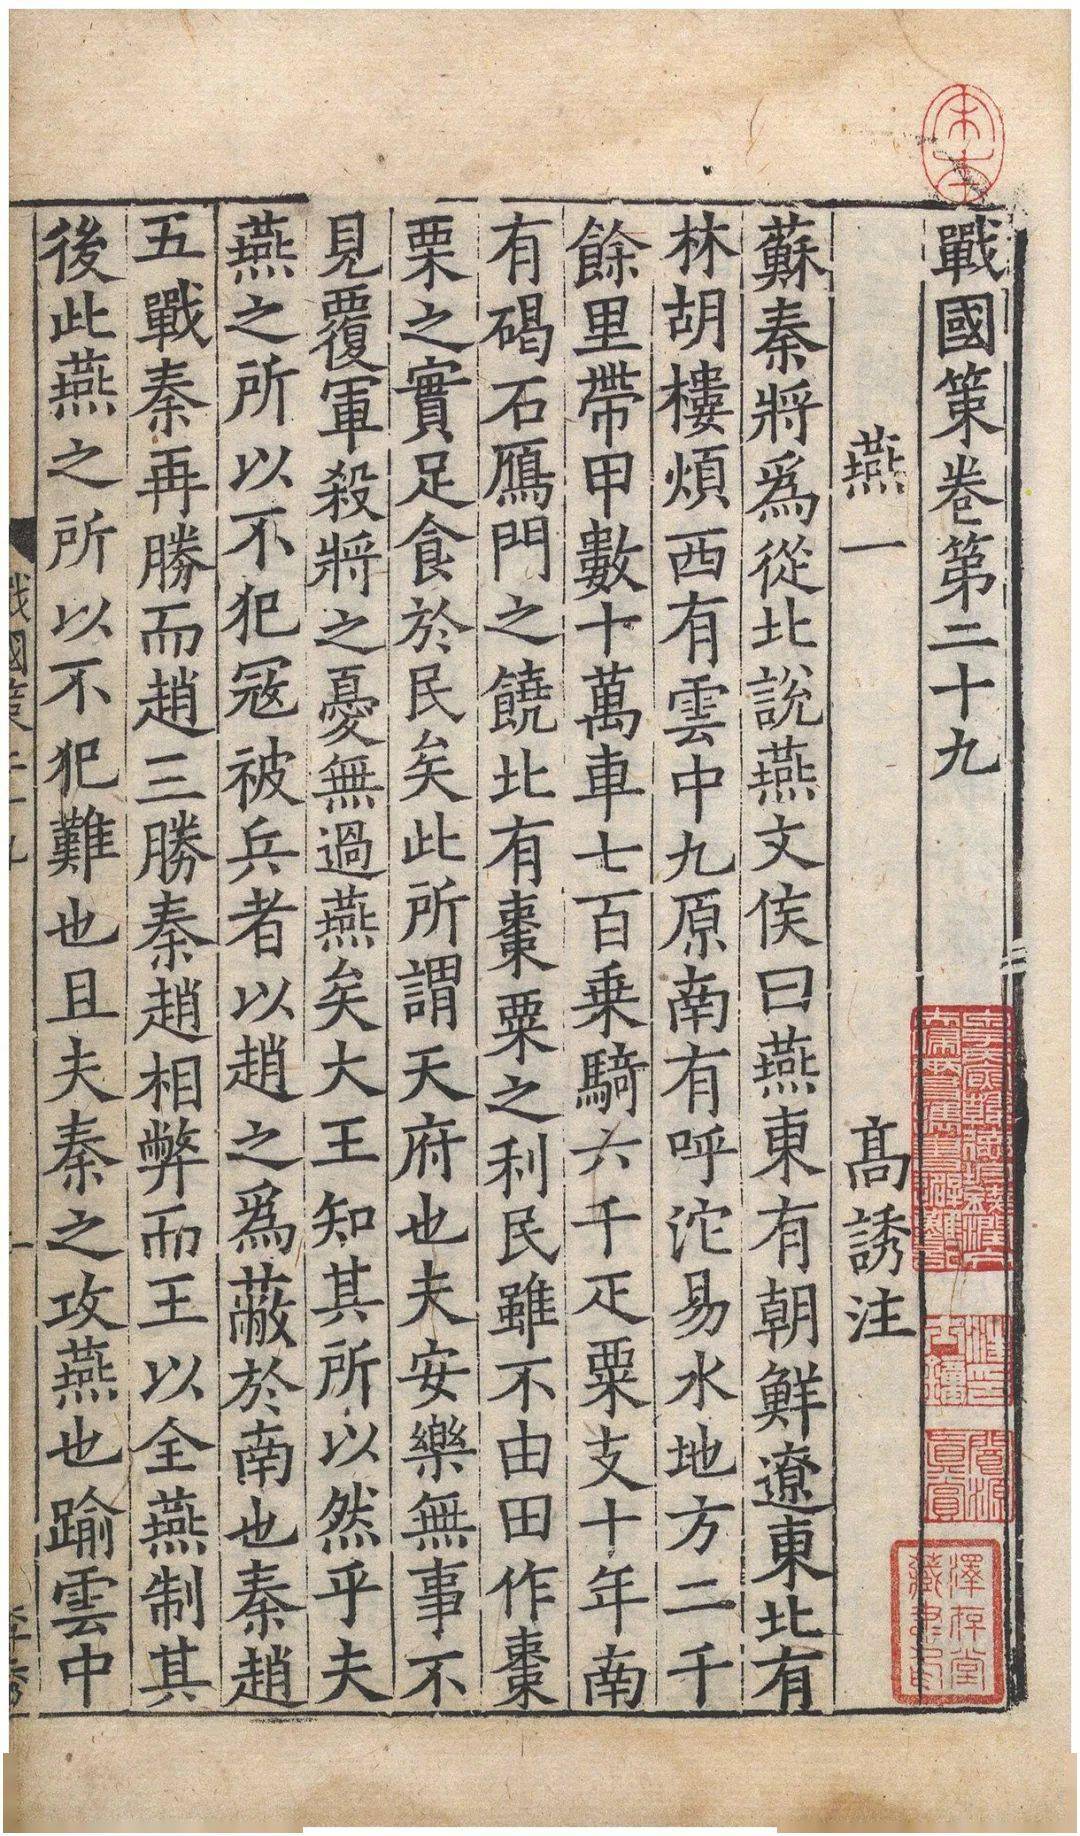 戰國策卷第二十九
燕一　高誘注
蘇秦將爲從北說燕文侯曰燕東有朝鮮遼東北有
林胡樓煩西有雲中九原南有呼沱易水地方二千
餘里帶甲數十萬車七百乗騎六千疋粟支十年南
有碣石鴈門之饒北有棗粟之利民雖不由田作棗
栗之實足食於民矣此所謂天府也夫安樂無事不
見覆軍殺將之憂無過燕矣大王知其所以然乎夫
燕之所以不犯冦被兵者以趙之爲蔽於南也秦趙
五戰秦再勝而趙三勝秦趙相弊而王以全燕制其
後此燕之所以不犯難也且夫秦之攻燕也踰雲中
戰國策二十九
一
李秀
宋本
汪士鐘
閬源真賞
澤存堂藏書印